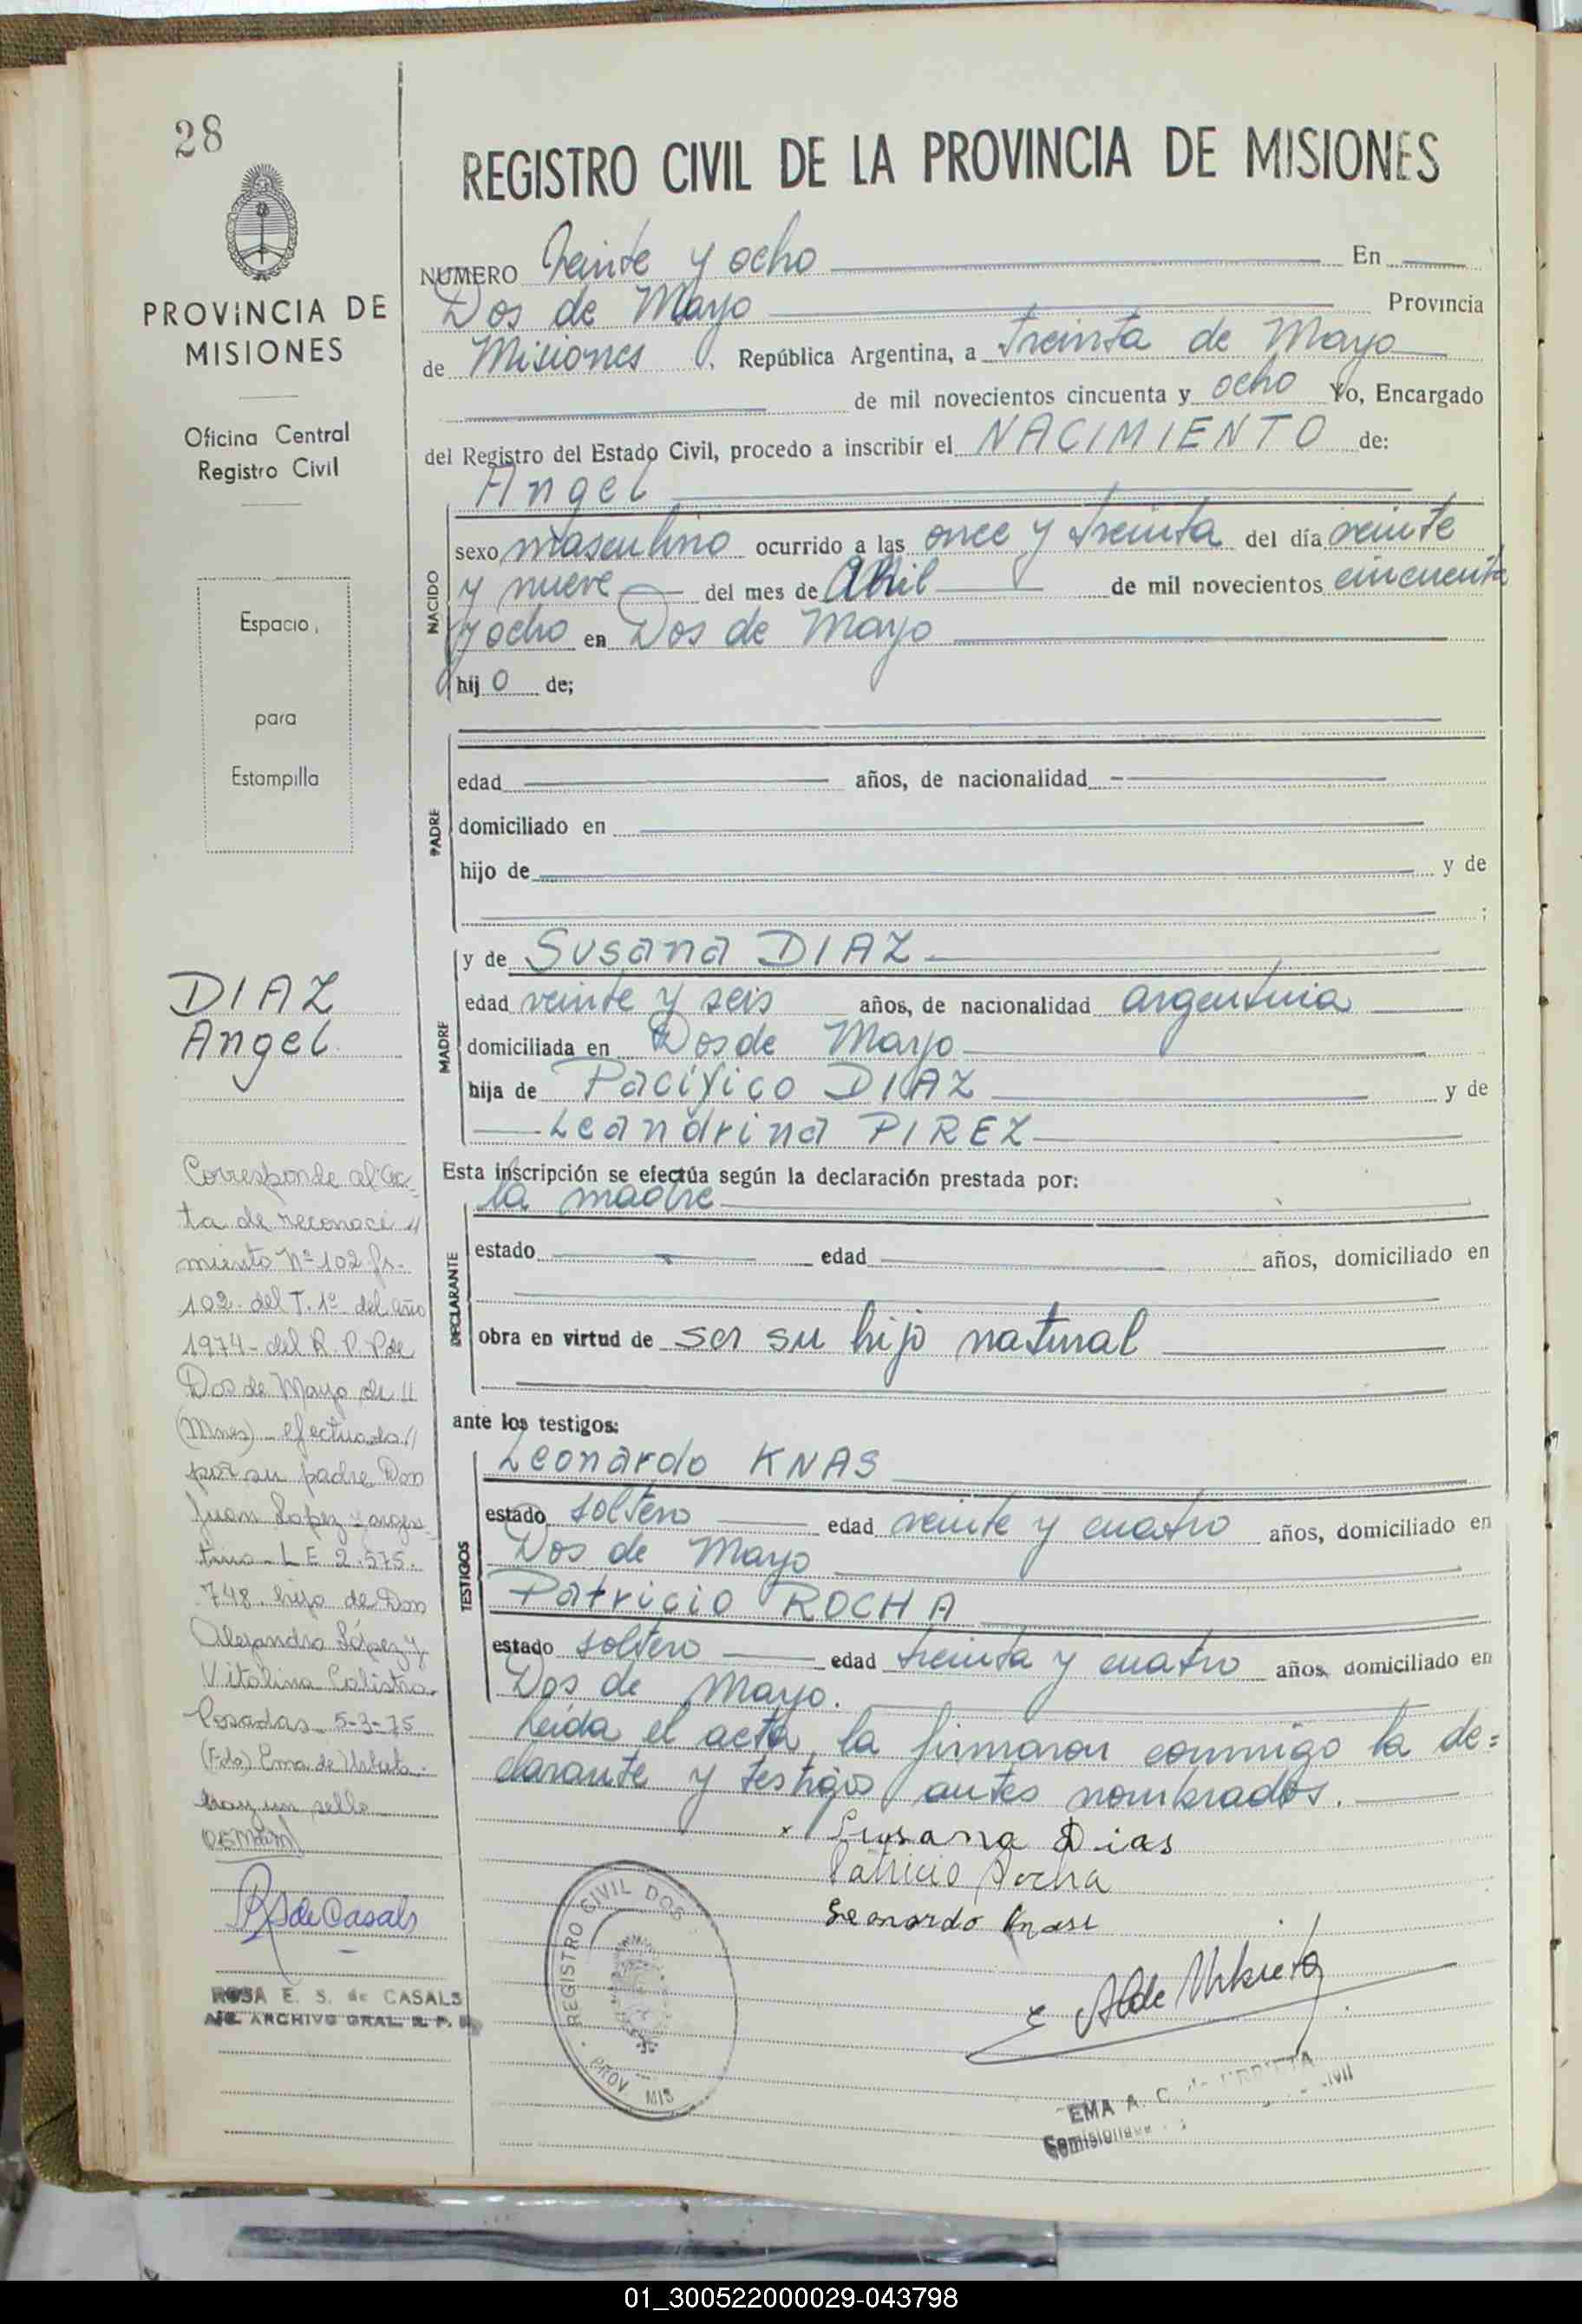 28
PROVINCIA DE
MISIONES
Oficina Central
Registro Civil
Espacio
para
Estampilla
REGISTRO CIVIL DE LA PROVINCIA DE MISIONES
NUMERO Veinte y ocho En
Dos de Mayo Provincia
de Misiones . República Argentina, a treinta de Mayo
de mil novecientos cincuenta y ocho Yo, Encargado
del Registro del Estado Civil, procedo a inscribir el NACIMIENTO de:
Angel
NACIDO
sexo masculino ocurrido a las once y treinta del día veinte
y nueve del mes de Abril de mil novecientos cincuenta
y ocho en Dos de Mayo
hij o de;
PADRE
edad años, de nacionalidad
domiciliado en
hijo de y de
;
MADRE
y de Susana DIAZ
edad veinte y seis años, de nacionalidad argentina
domiciliada en Dos de Mayo
hija de Pacifico DIAZ y de
Leandrina PIREZ
Esta inscripción se efectúa según la declaración prestada por:
la madre
DECLARANTE
estado edad años, domiciliado en
obra en virtud de ser su hijo natural
ante los testigos:
TESTIGOS
Leonardo KNAS
estado soltero edad veinte y cuatro años, domiciliado en
Dos de Mayo
Patricio ROCHA
estado soltero edad treinta y cuatro años, domiciliado en
Dos de Mayo.
Leída el acta, la firmaron conmigo la de=
clarante y testigos antes nombrados.
x Susana Dias
Patricio Rocha
Leonardo
REGISTRO CIVIL DOS
PROV MIS
EMA A. C.
DIAZ
Angel
Corresponde al ac-
ta de reconoci //
miento Nº 102 fs.
102 del T. 1º del año
1974 - del R. P. P de
Dos de Mayo de //
(Mnes) - efectuada //
por su padre Don
Juan Lopez - argen-
tino - L E 2.575.
748. hijo de Don
Alejandro López y
Vitalina Calistro.
Posadas - 5-3-75
(Fdo) Ema de Urbieta.
hay un sello
RS de Casals
ROSA E. S. de CASALS
ARCHIVO GRAL. R. P.
01_300522000029-043798